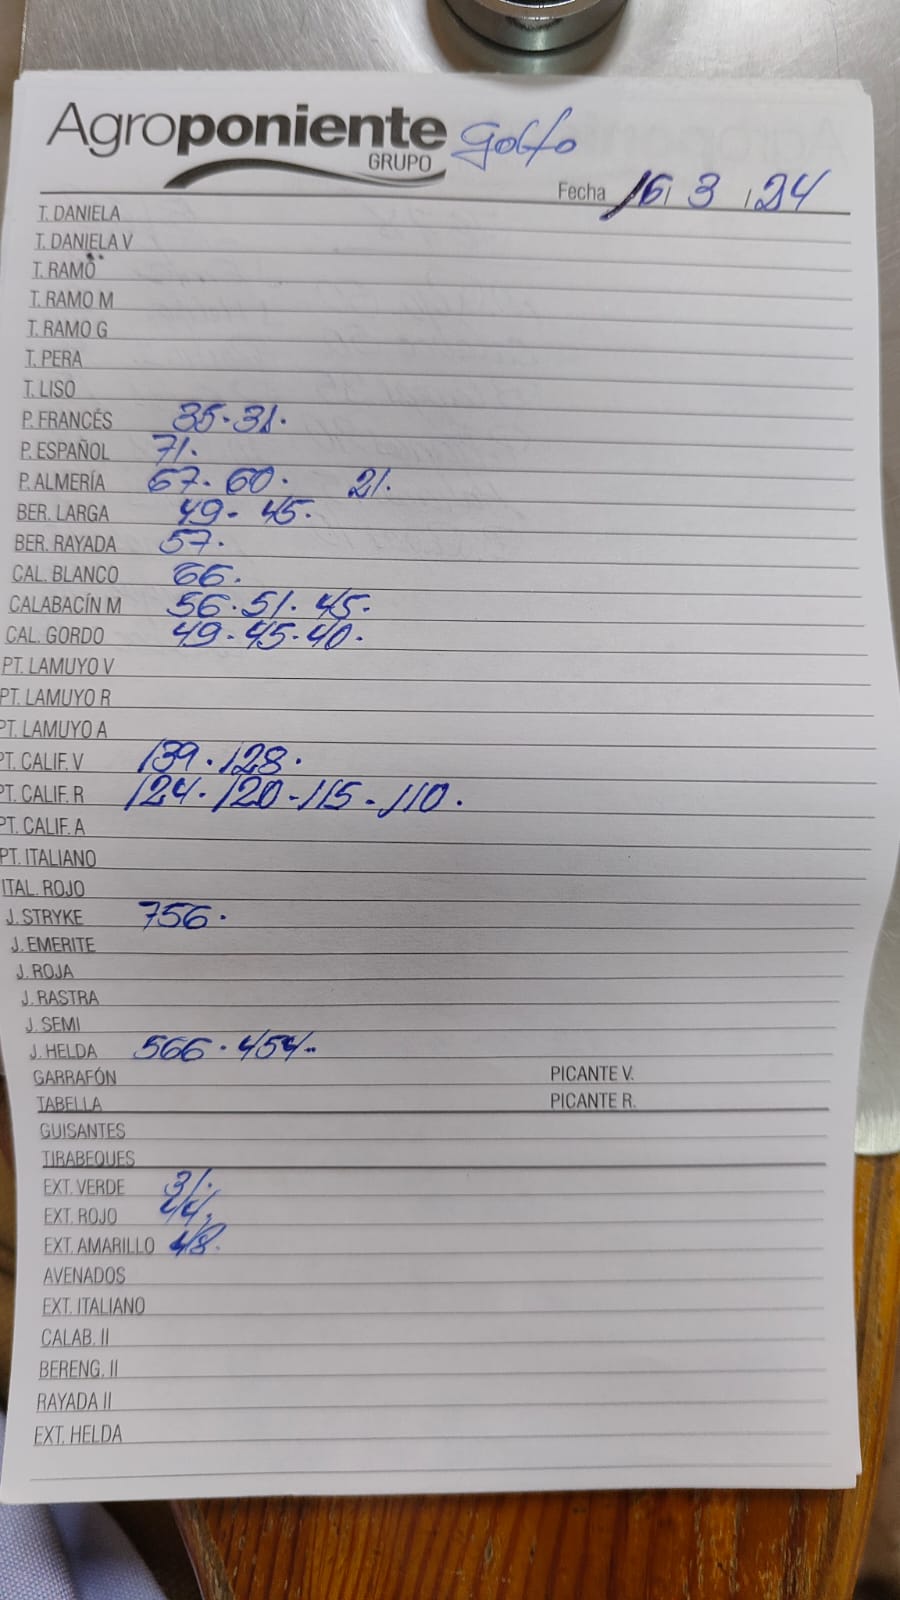 Agroponiente Golfo
GRUPO
Fecha 16 / 3 / 24
T. DANIELA
T. DANIELA V
T. RAMO
T. RAMO M
T. RAMO G
T. PERA
T. LISO
P. FRANCÉS 35. 31.
P. ESPAÑOL 71.
P. ALMERÍA 67. 60. 21.
BER. LARGA 49 - 45.
BER. RAYADA 57.
CAL. BLANCO 66.
CALABACÍN M 56. 51. 45.
CAL. GORDO 49 - 45 - 40.
PT. LAMUYO V
PT. LAMUYO R
PT. LAMUYO A
PT. CALIF. V 139. 128.
PT. CALIF. R 124. 120 - 115 - 110.
PT. CALIF. A
PT. ITALIANO
ITAL. ROJO
J. STRYKE 756.
J. EMERITE
J. ROJA
J. RASTRA
J. SEMI
J. HELDA 566. 454..
GARRAFÓN PICANTE V.
TABELLA PICANTE R.
GUISANTES
TIRABEQUES
EXT. VERDE 31.
EXT. ROJO 44.
EXT. AMARILLO 48.
AVENADOS
EXT. ITALIANO
CALAB. II
BERENG. II
RAYADA II
EXT. HELDA